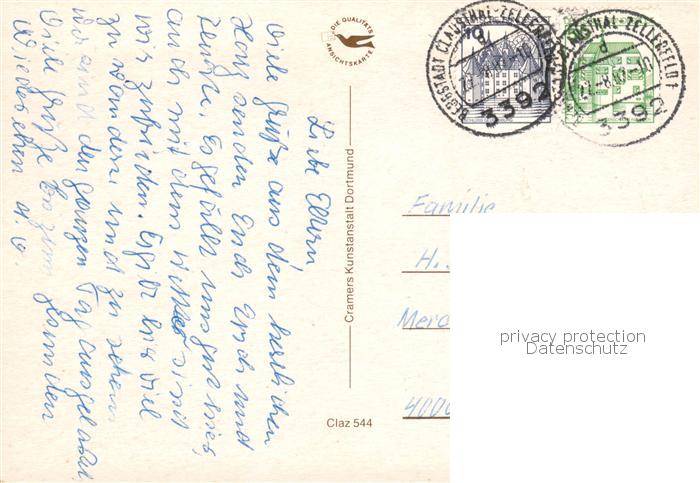 Liebe Eltern!
Viele Grüße aus dem herrlichen
Harz senden Euch Erich und
Es gefällt uns gut hier,
auch mit dem Wetter sind
wir zufrieden. Es gibt hier viel
zu wandern und zu sehen
wir sind den ganzen Tag ausgelastet.
Viele Grüße
Wiedersehen
DIE QUALITÄTS
ANSICHTSKARTE
Cramers Kunstanstalt Dortmund
Claz 544
BERGSTADT CLAUSTHAL-ZELLERFELD 1
d
3392
CLAUSTHAL-ZELLERFELD 1
d
3392
Familie
H.
privacy protection
Datenschutz